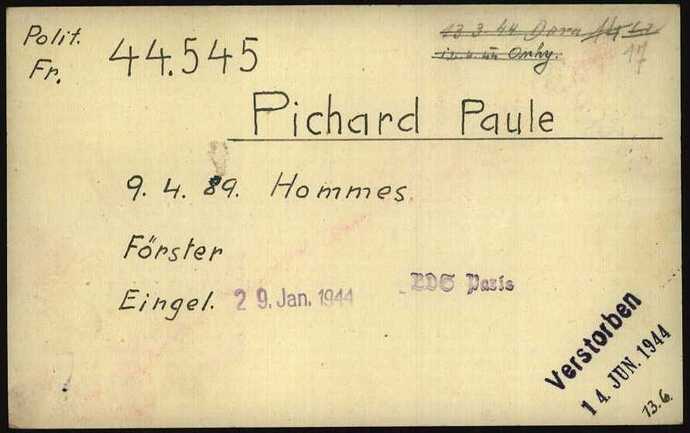 Polit.
Fr.
44.545
13 3. 44 Dora
Pichard Paule
9. 4. 89. Hommes.
Förster
Eingel. 29. Jan. 1944 BDS Paris
Verstorben
14. JUN. 1944
13.6.
17